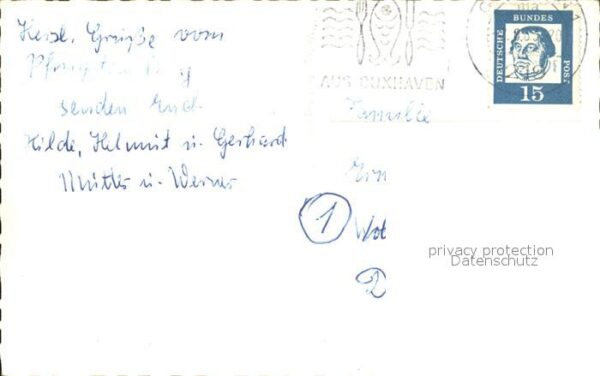 Herzl. Grüße vom
senden Euch
Hilde, Helmut u. Gerhard
Mutter u. Werner
AUS CUXHAVEN
DEUTSCHE
BUNDES
POST
15
Familie
1
privacy protection
Datenschutz